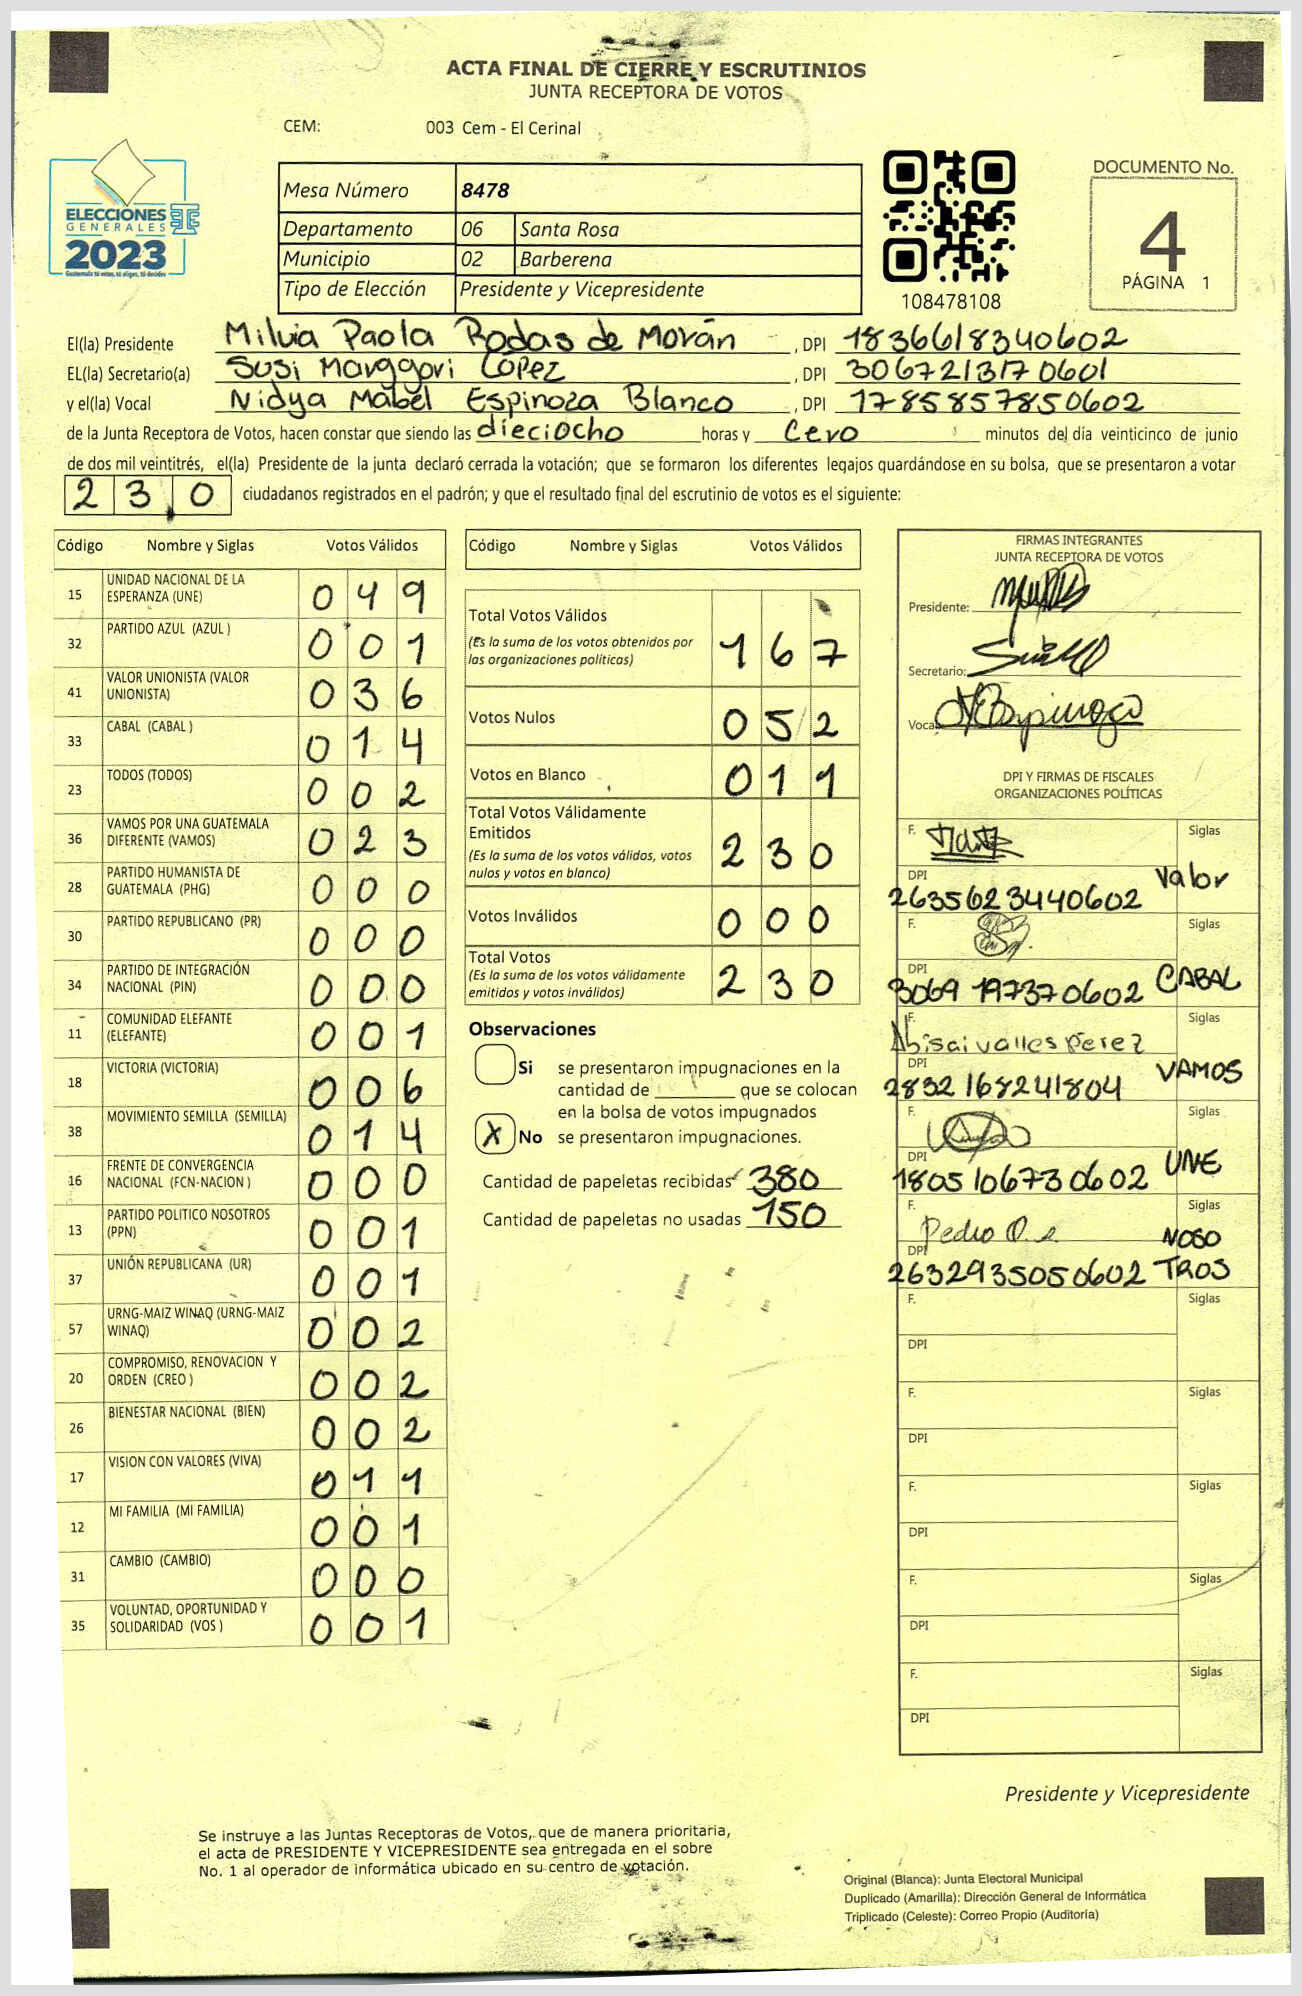 ACTA FINAL DE CIERRE Y ESCRUTINIOS
JUNTA RECEPTORA DE VOTOS
CEM: 003 Cem - El Cerinal
ELECCIONES
GENERALES
2023
Guatemala tú votas, tú eliges, tú decides
Mesa Número 8478
Departamento 06 Santa Rosa
Municipio 02 Barberena
Tipo de Elección Presidente y Vicepresidente
108478108
DOCUMENTO No.
4
PÁGINA 1
El(la) Presidente Milvia Paola Rodas de Morán , DPI 1836618340602
EL(la) Secretario(a) Susi Marggori López , DPI 3067213170601
y el(la) Vocal Nidya Mabel Espinoza Blanco , DPI 1785857850602
de la Junta Receptora de Votos, hacen constar que siendo las dieciocho horas y cero minutos del día veinticinco de junio
de dos mil veintitrés, el(la) Presidente de la junta declaró cerrada la votación; que se formaron los diferentes legajos guardándose en su bolsa, que se presentaron a votar
2 3 0 ciudadanos registrados en el padrón; y que el resultado final del escrutinio de votos es el siguiente:
Código Nombre y Siglas Votos Válidos
15 UNIDAD NACIONAL DE LA
ESPERANZA (UNE) 0 4 9
32 PARTIDO AZUL (AZUL ) 0 0 1
41 VALOR UNIONISTA (VALOR
UNIONISTA) 0 3 6
33 CABAL (CABAL ) 0 1 4
23 TODOS (TODOS) 0 0 2
36 VAMOS POR UNA GUATEMALA
DIFERENTE (VAMOS) 0 2 3
28 PARTIDO HUMANISTA DE
GUATEMALA (PHG) 0 0 0
30 PARTIDO REPUBLICANO (PR) 0 0 0
34 PARTIDO DE INTEGRACIÓN
NACIONAL (PIN) 0 0 0
11 COMUNIDAD ELEFANTE
(ELEFANTE) 0 0 1
18 VICTORIA (VICTORIA) 0 0 6
38 MOVIMIENTO SEMILLA (SEMILLA) 0 1 4
16 FRENTE DE CONVERGENCIA
NACIONAL (FCN-NACION ) 0 0 0
13 PARTIDO POLITICO NOSOTROS
(PPN) 0 0 1
37 UNIÓN REPUBLICANA (UR) 0 0 1
57 URNG-MAIZ WINAQ (URNG-MAIZ
WINAQ) 0 0 2
20 COMPROMISO, RENOVACION Y
ORDEN (CREO ) 0 0 2
26 BIENESTAR NACIONAL (BIEN) 0 0 2
17 VISION CON VALORES (VIVA) 0 1 1
12 MI FAMILIA (MI FAMILIA) 0 0 1
31 CAMBIO (CAMBIO) 0 0 0
35 VOLUNTAD, OPORTUNIDAD Y
SOLIDARIDAD (VOS ) 0 0 1
Código Nombre y Siglas Votos Válidos
Total Votos Válidos
(Es la suma de los votos obtenidos por
las organizaciones políticas) 1 6 7
Votos Nulos 0 5 2
Votos en Blanco 0 1 1
Total Votos Válidamente
Emitidos
(Es la suma de los votos válidos, votos
nulos y votos en blanco) 2 3 0
Votos Inválidos 0 0 0
Total Votos
(Es la suma de los votos válidamente
emitidos y votos inválidos) 2 3 0
Observaciones
Si se presentaron impugnaciones en la
cantidad de ________ que se colocan
en la bolsa de votos impugnados
X No se presentaron impugnaciones.
Cantidad de papeletas recibidas 380
Cantidad de papeletas no usadas 150
FIRMAS INTEGRANTES
JUNTA RECEPTORA DE VOTOS
Presidente:
Secretario:
Vocal NEspinoza
DPI Y FIRMAS DE FISCALES
ORGANIZACIONES POLÍTICAS
F. Siglas
DPI Valor
2635623440602
F. Siglas
DPI CABAL
3069197370602
F. Siglas
Abisai valles perez
DPI VAMOS
2832168241804
F. Siglas
DPI UNE
1805106730602
F. Siglas
Pedro O. NOSO
DPI TROS
2632935050602
F. Siglas
DPI
F. Siglas
DPI
F. Siglas
DPI
F. Siglas
DPI
F. Siglas
DPI
Presidente y Vicepresidente
Se instruye a las Juntas Receptoras de Votos, que de manera prioritaria,
el acta de PRESIDENTE Y VICEPRESIDENTE sea entregada en el sobre
No. 1 al operador de informática ubicado en su centro de votación.
Original (Blanca): Junta Electoral Municipal
Duplicado (Amarilla): Dirección General de Informática
Triplicado (Celeste): Correo Propio (Auditoría)